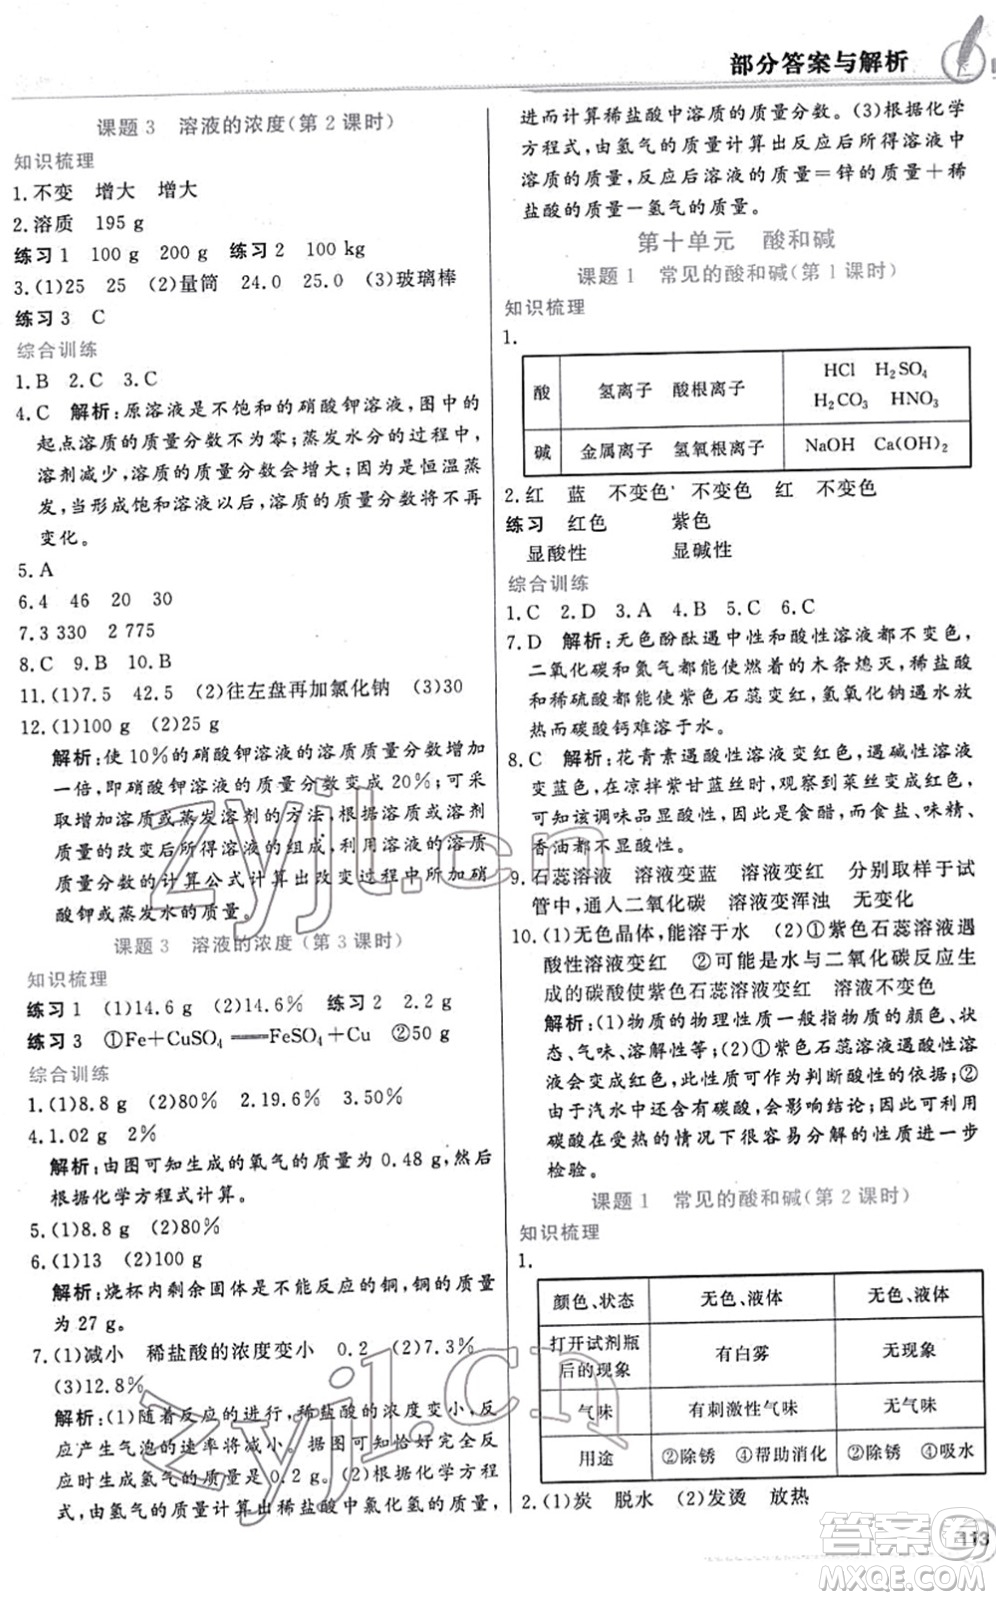 部分答案与解析
课题 3 溶液的浓度(第 2 课时)
知识梳理
1.不变 增大 增大
2.溶质 195 g
练习 1 100 g 200 g 练习 2 100 kg
3.(1)25 25 (2)量筒 24.0 25.0 (3)玻璃棒
练习 3 C
综合训练
1.B 2.C 3.C
4.C 解析:原溶液是不饱和的硝酸钾溶液,图中的
起点溶质的质量分数不为零;蒸发水分的过程中,
溶剂减少,溶质的质量分数会增大;因为是恒温蒸
发,当形成饱和溶液以后,溶质的质量分数将不再
变化。
5.A
6.4 46 20 30
7.3 330 2 775
8.C 9.B 10.B
11.(1)7.5 42.5 (2)往左盘再加氯化钠 (3)30
12.(1)100 g (2)25 g
解析:使 10%的硝酸钾溶液的溶质质量分数增加
一倍,即硝酸钾溶液的质量分数变成 20%;可采
取增加溶质或蒸发溶剂的方法,根据溶质或溶剂
质量的改变后所得溶液的组成,利用溶液的溶质
质量分数的计算公式计算出改变过程中所加硝
酸钾或蒸发水的质量。
课题 3 溶液的浓度(第 3 课时)
知识梳理
练习 1 (1)14.6 g (2)14.6% 练习 2 2.2 g
练习 3 ①Fe+CuSO₄══FeSO₄+Cu ②50 g
综合训练
1.(1)8.8 g (2)80% 2.19.6% 3.50%
4.1.02 g 2%
解析:由图可知生成的氧气的质量为 0.48 g,然后
根据化学方程式计算。
5.(1)8.8 g (2)80%
6.(1)13 (2)100 g
解析:烧杯内剩余固体是不能反应的铜,铜的质量
为 27 g。
7.(1)减小 稀盐酸的浓度变小 0.2 (2)7.3%
(3)12.8%
解析:(1)随着反应的进行,稀盐酸的浓度变小,反
应产生气泡的速率将减小。据图可知恰好完全反
应时生成氢气的质量是 0.2 g。(2)根据化学方程
式,由氢气的质量计算出稀盐酸中氯化氢的质量,
进而计算稀盐酸中溶质的质量分数。(3)根据化学
方程式,由氢气的质量计算出反应后所得溶液中
溶质的质量,反应后溶液的质量=锌的质量+稀
盐酸的质量-氢气的质量。
第十单元 酸和碱
课题 1 常见的酸和碱(第 1 课时)
知识梳理
1.
酸 氢离子 酸根离子 HCl H₂SO₄
H₂CO₃ HNO₃
碱 金属离子 氢氧根离子 NaOH Ca(OH)₂
2.红 蓝 不变色 不变色 红 不变色
练习 红色 紫色
显酸性 显碱性
综合训练
1.C 2.D 3.A 4.B 5.C 6.C
7.D 解析:无色酚酞遇中性和酸性溶液都不变色,
二氧化碳和氮气都能使燃着的木条熄灭,稀盐酸
和稀硫酸都能使紫色石蕊变红,氢氧化钠溶于水放
热而碳酸钙难溶于水。
8.C 解析:花青素遇酸性溶液变红色,遇碱性溶液
变蓝色,在凉拌紫甘蓝丝时,观察到菜丝变成红色,
可知该调味品可能显酸性,是食醋,而食盐、味精、
香油都不显酸性。
9.石蕊溶液 溶液变蓝 溶液变红 分别取样于试
管中,通入二氧化碳 溶液变浑浊 无变化
10.(1)无色晶体,能溶于水 (2)①紫色石蕊溶液遇
酸性溶液变红 ②可能是水与二氧化碳反应生
成的碳酸使紫色石蕊溶液变红 溶液不变色
解析:(1)物质的物理性质一般指物质的颜色、状
态、气味、溶解性等;(2)①紫色石蕊溶液遇酸性溶
液会变成红色,这是判断酸性的依据;②
由于汽水中有碳酸,会影响结论;因此可利用
碳酸在受热的情况下很容易分解的性质进一步
检验。
课题 1 常见的酸和碱(第 2 课时)
知识梳理
1.
颜色、状态 无色、液体 无色、液体
打开试剂瓶
后的现象 有白雾 无现象
气味 有刺激性气味 无气味
用途 ②除锈 ④帮助消化 ②除锈 ④吸水
2.(1)炭 脱水 (2)发烫 放热
113
zyjl.cn
zyjl.cn
答案圈
MXQE.COM